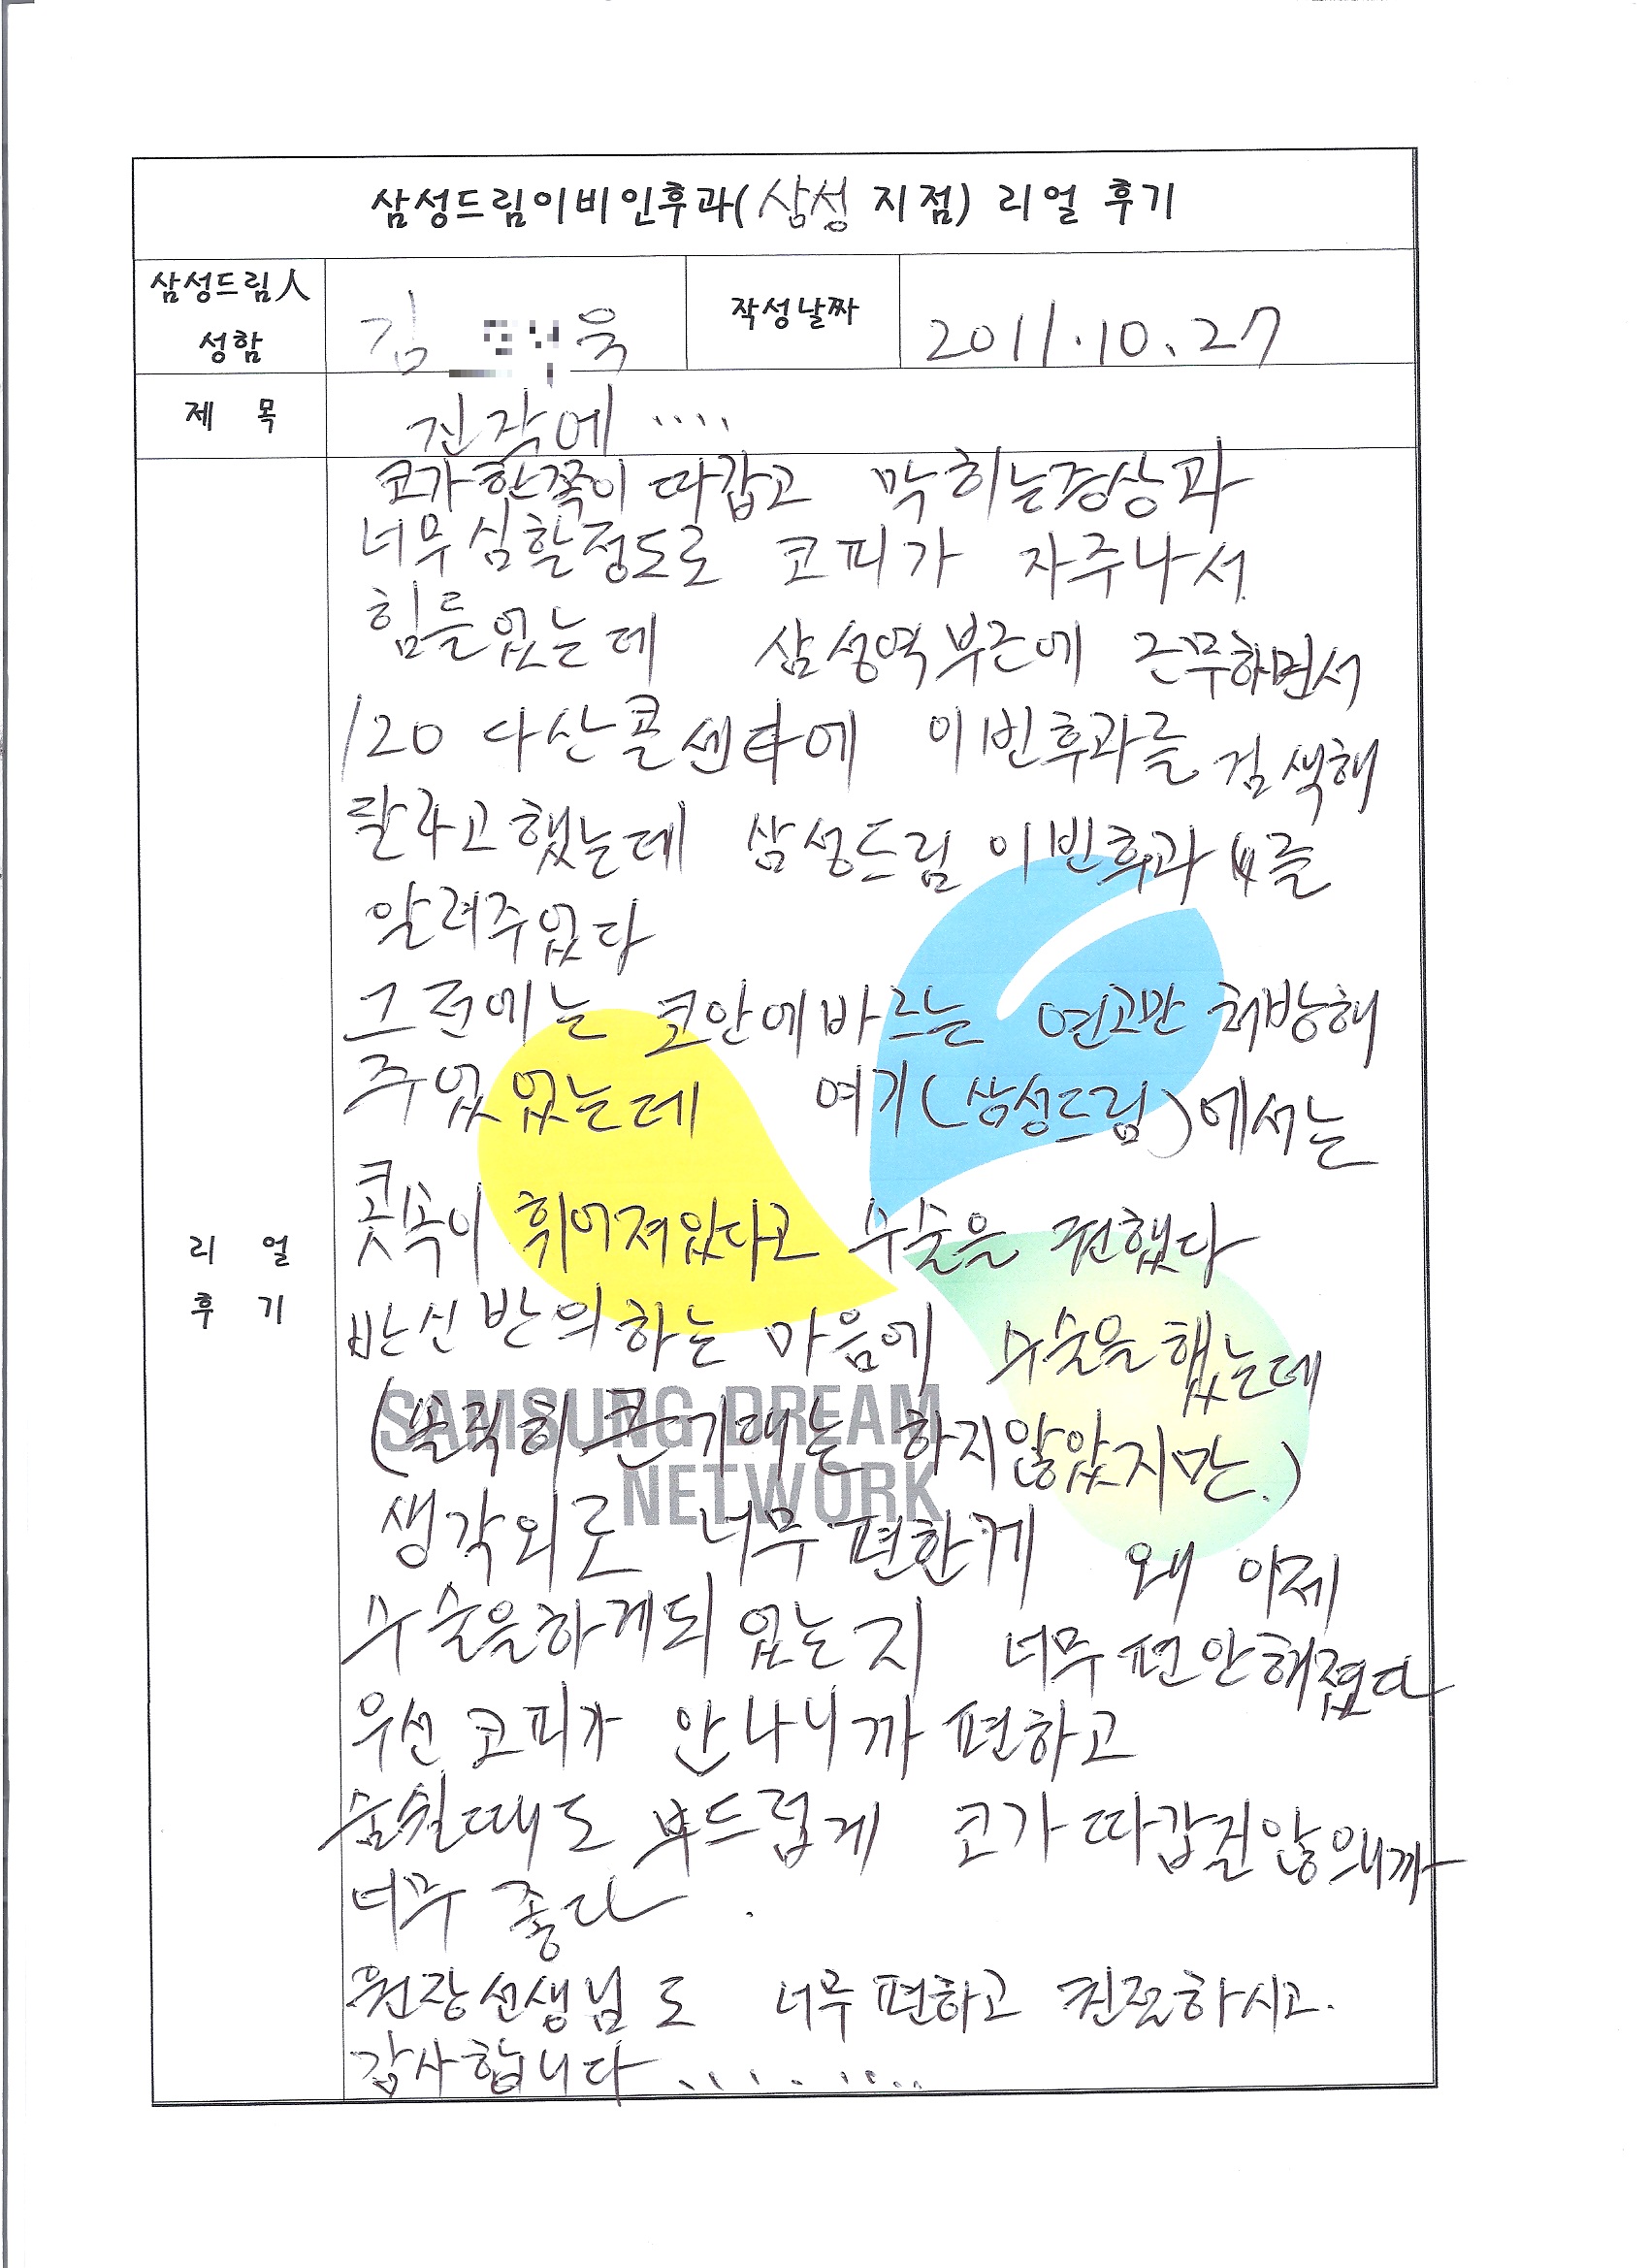 삼성드림이비인후과(삼성 지점) 리얼 후기
삼성드림人
성함
김 욱
작성날짜
2011.10.27
제 목
진작에 ....
코가 한쪽이 따갑고 막히는증상과
너무 심할정도로 코피가 자주나서
힘들었는데 삼성역 부근에 근무하면서
120 다산콜센타에 이빈후과를 검색해
달라고 했는데 삼성드림 이빈후과 를
알려주었다
그 전에는 코안에 바르는 연고만 처방해
주었었는데 여기(삼성드림)에서는
콧속이 휘어져있다고 수술을 권했다
반신반의 하는 마음에 수술을 했는데
(솔직히 큰 기대는 하지않았지만.)
생각외로 너무 편한게 왜 이제
수술을하게되었는지 너무 편안해졌다
우선 코피가 안나니까 편하고
숨쉴때도 부드럽게 코가 따갑질않으니까
너무 좋다.
원장선생님도 너무 편하고 친절하시고.
감사합니다..........
리 얼
후 기
SAMSUNG DREAM
NETWORK